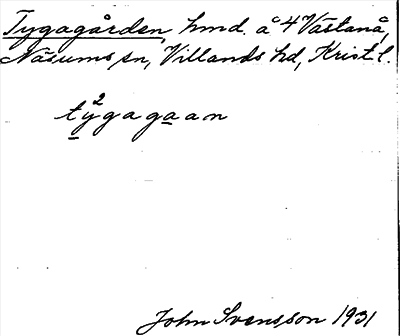 Tygagården, hmd. å 4 Västanå,
Näsums sn, Villands hd, Krist l.
ty²gagaan
John Svensson 1931